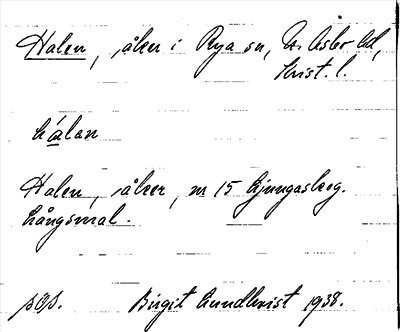 Halen, åker i Rya sn, N. Åsbo hd,
Krist. l.
hálan
Halen, åker, nr 15 Ljungaskog.
Långsmal.
Birgit Lundkvist 1938.